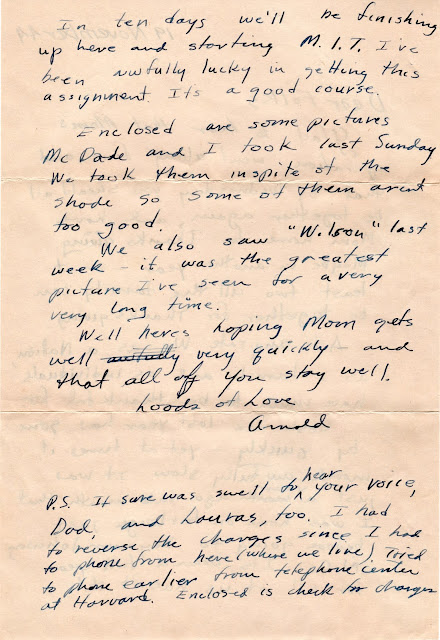 In ten days we'll be finishing
up here and starting M.I.T. I've
been awfully lucky in getting this
assignment. It's a good course.
Enclosed are some pictures
McDade and I took last Sunday
We took them inspite of the
shade so some of them arent
too good.
We also saw "Wilson" last
week - it was the greatest
picture I've seen for a very
very long time.
Well here's hoping Mom gets
well awfully very quickly and
that all off you stay well.
Loads of Love
Arnold
P.S. It sure was swell to hear your voice,
Dad, and Lauras, too. I had
to reverse the charges since I had
to phone from here (where we live). Tried
to phone earlier from telephone center
at Harvard. Enclosed is check for charges